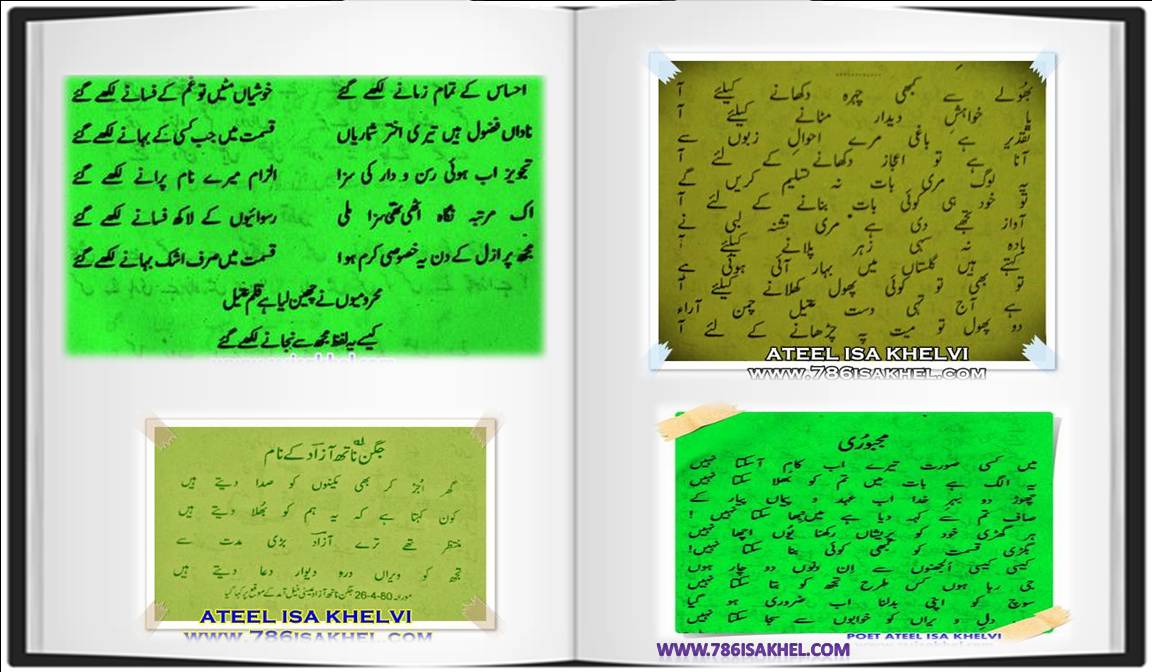 احساس کے تمام زمانے لکھے گئے خوشیاں مٹیں تو غم کے فسانے لکھے گئے
ناداں فضول ہیں تیری اختر شماریاں قسمت میں جب کسی کے بہانے لکھے گئے
تجویز اب ہوئی رسن و دار کی سزا الزام میرے نام پرانے لکھے گئے
اک مرتبہ نگاہ اٹھی تھی سزا ملی رسوائیوں کے لاکھ فسانے لکھے گئے
مجھ پر ازل کے دن یہ خصوصی کرم ہوا قسمت میں صرف اشک بہانے لکھے گئے
محرومیوں نے چھین لیا ہے قلم عتیل
کیسے یہ لفظ مجھ سے نجانے لکھے گئے
جگن ناتھ آزاد کے نام
گھر اُجڑ کر بھی مکینوں کو صدا دیتے ہیں
کون کہتا ہے کہ یہ ہم کو بھُلا دیتے ہیں
منتظر تھے ترے آزاد بڑی مدت سے
تجھ کو ویراں در و دیوار دعا دیتے ہیں
مورخہ 26-4-80 جگن ناتھ آزاد عیسیٰ خیل آمد کے موقع پر کہا گیا
ATEEL ISA KHELVI
WWW.786ISAKHEL.COM
بھُولے سے کبھی چہرہ دکھانے کیلئے آ
یا خواہشِ دیدار مٹانے کیلئے آ
تقدیر ہے باغی مرے احوالِ زبوں سے
آنا ہے تو اعجاز دکھانے کے لئے آ
یہ لوگ مری بات نہ تسلیم کریں گے
تو خود ہی کوئی بات بنانے کے لئے آ
آواز تجھے دی ہے مری تشنہ لبی نے
بادہ نہ سہی زہر پلانے کیلئے آ
کہتے ہیں گلستاں میں بہار آئی ہوئی ہے
تو بھی تو کوئی پھول کھلانے کیلئے آ
ہے آج تہی دست عتیل چمن آراء
دو پھول تو میت پہ چڑھانے کے لئے آ
ATEEL ISA KHELVI
WWW.786ISAKHEL.COM
مجبوُری
میں کسی صورت تیرے اب کام آ سکتا نہیں
یہ الگ ہے بات میں تم کو بھُلا سکتا نہیں
چھوڑ دو بہرِ خدا اب عہد و پیماں پیار کے
صاف تم سے کہہ دیا ہے میں چھپا سکتا نہیں !
ہر گھڑی خود کو پریشاں رکھنا یوُں اچھا نہیں
بگڑی قسمت کو کبھی کوئی بنا سکتا نہیں!
کیسی کیسی اُلجھنوں سے اِن دنوں دو چار ہوں
جی رہا ہوں کس طرح تجھ کو بتا سکتا نہیں
سوچ کو اپنی بدلنا اب ضروری ہو گیا
دلِ ویراں کو خوابوں سے سجا سکتا نہیں
POET ATEEL ISA KHELVI
WWW.786ISAKHEL.COM